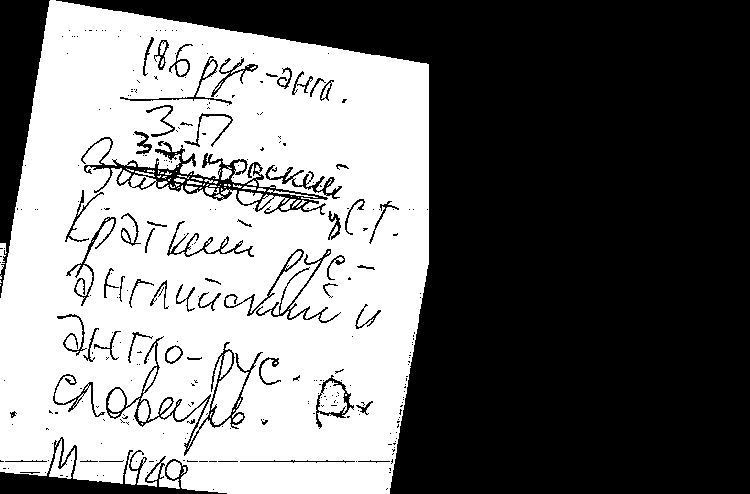 186 рус.-англ.
З-17
Займовский
С.Г.
Краткий рус.-
английский и
англо-рус.
словарь.
М 1949